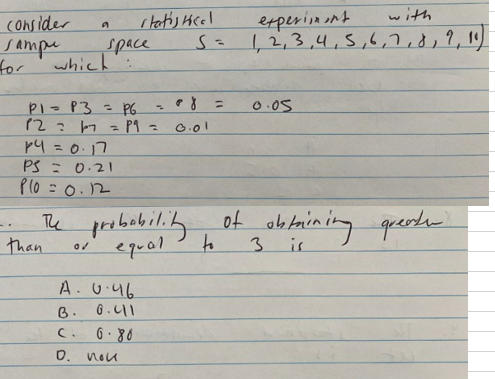 consider a statistical experiment with
sample space S = 1, 2, 3, 4, 5, 6, 7, 8, 9, 10)
for which :
P1 = P3 = P6 = P8 = 0.05
P2 = P7 = P9 = 0.01
P4 = 0.17
P5 = 0.21
P10 = 0.12
.. The probability of obtaining greater
than or equal to 3 is
A. 0.46
B. 0.41
C. 0.80
D. none